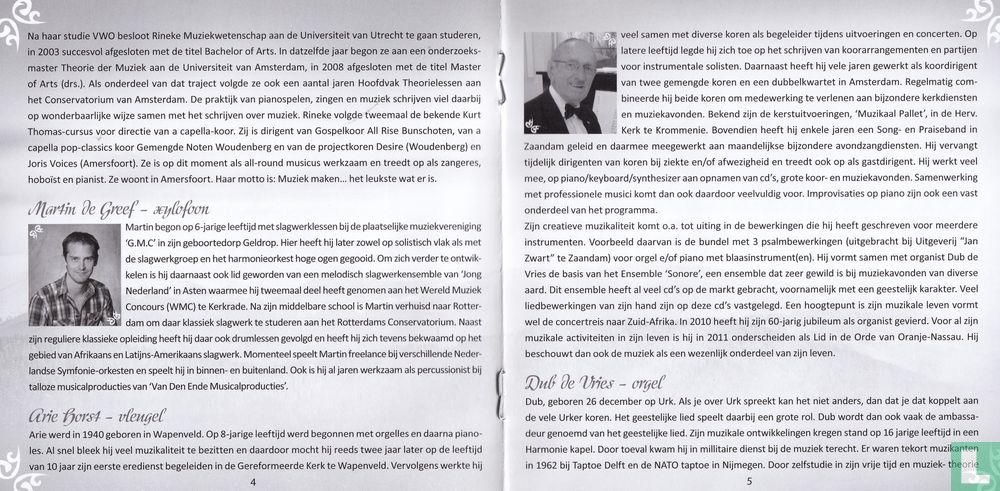 Na haar studie VWO besloot Rineke Muziekwetenschap aan de Universiteit van Utrecht te gaan studeren,
in 2003 succesvol afgesloten met de titel Bachelor of Arts. In datzelfde jaar begon ze aan een onderzoeks-
master Theorie der Muziek aan de Universiteit van Amsterdam, in 2008 afgesloten met de titel Master
of Arts (drs.). Als onderdeel van dat traject volgde ze ook een aantal jaren Hoofdvak Theorielessen aan
het Conservatorium van Amsterdam. De praktijk van pianospelen, zingen en muziek schrijven viel daarbij
op wonderbaarlijke wijze samen met het schrijven over muziek. Rineke volgde tweemaal de bekende Kurt
Thomas-cursus voor directie van a capella-koor. Zij is dirigent van Gospelkoor All Rise Bunschoten, van a
capella pop-classics koor Gemengde Noten Woudenberg en van de projectkoren Desire (Woudenberg) en
Joris Voices (Amersfoort). Ze is op dit moment als all-round musicus werkzaam en treedt op als zangeres,
hoboïst en pianist. Ze woont in Amersfoort. Haar motto is: Muziek maken... het leukste wat er is.
Martin de Greef – xylofoon
Martin begon op 6-jarige leeftijd met slagwerklessen bij de plaatselijke muziekvereniging
'G.M.C' in zijn geboortedorp Geldrop. Hier heeft hij later zowel op solistisch vlak als met
de slagwerkgroep en het harmonieorkest hoge ogen gegooid. Om zich verder te ontwik-
kelen is hij daarnaast ook lid geworden van een melodisch slagwerkensemble van 'Jong
Nederland' in Asten waarmee hij tweemaal deel heeft genomen aan het Wereld Muziek
Concours (WMC) te Kerkrade. Na zijn middelbare school is Martin verhuisd naar Rotter-
dam om daar klassiek slagwerk te studeren aan het Rotterdams Conservatorium. Naast
zijn reguliere klassieke opleiding heeft hij daar ook drumlessen gevolgd en heeft hij zich tevens bekwaamd op het
gebied van Afrikaans en Latijns-Amerikaans slagwerk. Momenteel speelt Martin freelance bij verschillende Neder-
landse Symfonie-orkesten en speelt hij in binnen- en buitenland. Ook is hij al jaren werkzaam als percussionist bij
talloze musicalproducties van 'Van Den Ende Musicalproducties'.
Arie Borst – vleugel
Arie werd in 1940 geboren in Wapenveld. Op 8-jarige leeftijd werd begonnen met orgelles en daarna piano-
les. Al snel bleek hij veel muzikaliteit te bezitten en daardoor mocht hij reeds twee jaar later op de leeftijd
van 10 jaar zijn eerste eredienst begeleiden in de Gereformeerde Kerk te Wapenveld. Vervolgens werkte hij
4
veel samen met diverse koren als begeleider tijdens uitvoeringen en concerten. Op
latere leeftijd legde hij zich toe op het schrijven van koorarrangementen en partijen
voor instrumentale solisten. Daarnaast heeft hij vele jaren gewerkt als koordirigent
van twee gemengde koren en een dubbelkwartet in Amsterdam. Regelmatig com-
bineerde hij beide koren om medewerking te verlenen aan bijzondere kerkdiensten
en muziekavonden. Bekend zijn de kerstuitvoeringen, 'Muzikaal Pallet', in de Herv.
Kerk te Krommenie. Bovendien heeft hij enkele jaren een Song- en Praiseband in
Zaandam geleid en daarmee meegewerkt aan maandelijkse bijzondere avondzangdiensten. Hij vervangt
tijdelijk dirigenten van koren bij ziekte en/of afwezigheid en treedt ook op als gastdirigent. Hij werkt veel
mee, op piano/keyboard/synthesizer aan opnamen van cd's, grote koor- en muziekavonden. Samenwerking
met professionele musici komt dan ook daardoor veelvuldig voor. Improvisaties op piano zijn ook een vast
onderdeel van het programma.
Zijn creatieve muzikaliteit komt o.a. tot uiting in de bewerkingen die hij heeft geschreven voor meerdere
instrumenten. Voorbeeld daarvan is de bundel met 3 psalmbewerkingen (uitgebracht bij Uitgeverij "Jan
Zwart" te Zaandam) voor orgel e/of piano met blaasinstrument(en). Hij vormt samen met organist Dub de
Vries de basis van het Ensemble 'Sonore', een ensemble dat zeer gewild is bij muziekavonden van diverse
aard. Dit ensemble heeft al veel cd's op de markt gebracht, voornamelijk met een geestelijk karakter. Veel
liedbewerkingen van zijn hand zijn op deze cd's vastgelegd. Een hoogtepunt is zijn muzikale leven vormt
wel de concertreis naar Zuid-Afrika. In 2010 heeft hij zijn 60-jarig jubileum als organist gevierd. Voor al zijn
muzikale activiteiten in zijn leven is hij in 2011 onderscheiden als Lid in de Orde van Oranje-Nassau. Hij
beschouwt dan ook de muziek als een wezenlijk onderdeel van zijn leven.
Dub de Vries – orgel
Dub, geboren 26 december op Urk. Als je over Urk spreekt kan het niet anders, dan dat je dat koppelt aan
de vele Urker koren. Het geestelijke lied speelt daarbij een grote rol. Dub wordt dan ook vaak de ambassa-
deur genoemd van het geestelijke lied. Zijn muzikale ontwikkelingen kregen stand op 16 jarige leeftijd in een
Harmonie kapel. Door toeval kwam hij in militaire dienst bij de muziek terecht. Er waren tekort muzikanten
in 1962 bij Taptoe Delft en de NATO taptoe in Nijmegen. Door zelfstudie in zijn vrije tijd en muziek- theorie
5